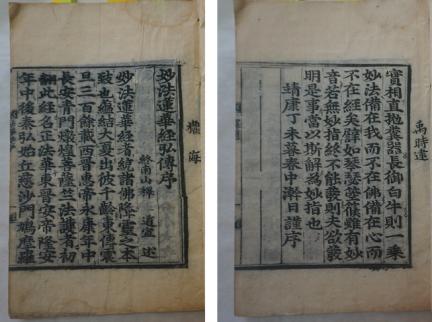 海
妙法蓮華經弘傳序
終南山釋 道宣 述
妙法蓮華經者統諸佛降靈之本
致也蘊結大夏出彼千齡東傳震
旦三百餘載西晉惠帝永康年中
長安青門燉煌菩薩竺法護者初
翻此經名正法華東晉安帝隆安
年中後秦弘始龜茲沙門鳩摩羅
禹時達
實相直拋糞器長御白牛則一乘
妙法備在我而不在佛備在心而
不在經矣譬如琴瑟箜篌雖有妙
音若無妙指終不能發則夫欲發
明是事當以斯解為妙指也
靖康丁未暮春中澣日謹序